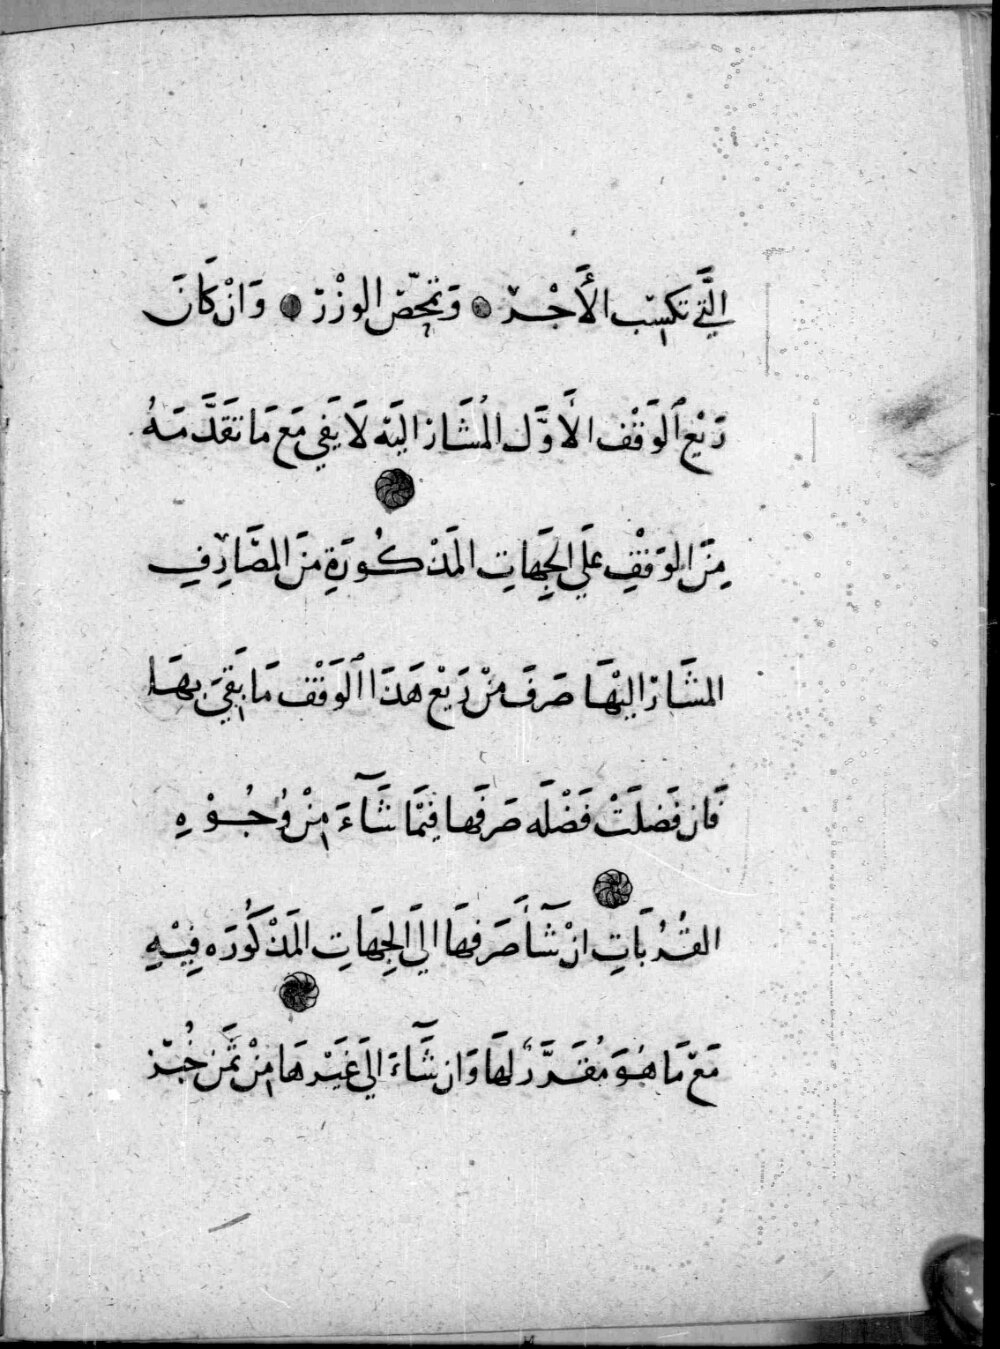 الَّتِي تكسب الأَجْر وَتمحّص الوِزْر وَانْ كَانَ
رَيْع الوَقْف الأَوَّل المُشَار اليَه لَا يَفي مَعَ مَا تقَدَّمَهُ
مِنَ الوَقْفِ عَلَى الجِهَاتِ المَذكُورَةِ مِنَ المصَارِفِ
المشَار اليْهَا صَرَفَ مِنْ رَيْع هَذَا الوَقْف مَا بَقِيَ بهَا
فَان فَضلَتْ فَضْلَه صَرَفَها فيمَا شَآءَ مِنْ وُجُوْهِ
القُرُبَاتِ انْ شَآَ صَرَفهَا الَي الجِهَاتِ المَذْكُورَه فِيْهِ
مَعْ مَا هُوَ مُقَدَّرٌ لهَا وَان شَآءَ الَي غَيْرهَا مِنْ ثَمَن خُبْز